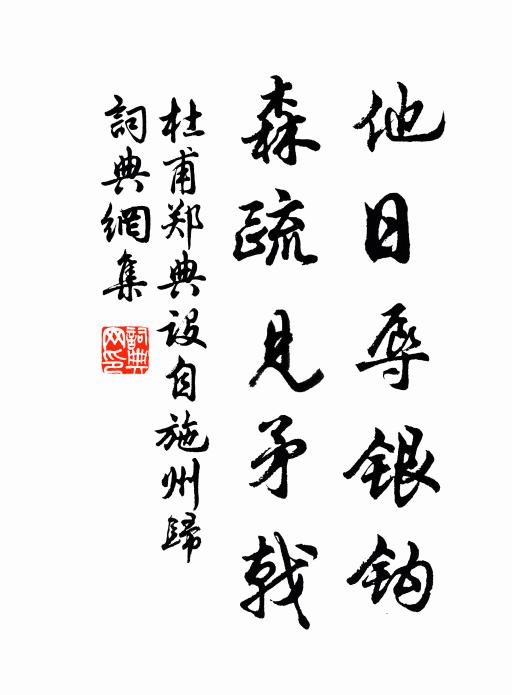 他日辱银钩
森疏见矛戟
杜甫郑典设自施州歸
詞典網集
詞典
网印